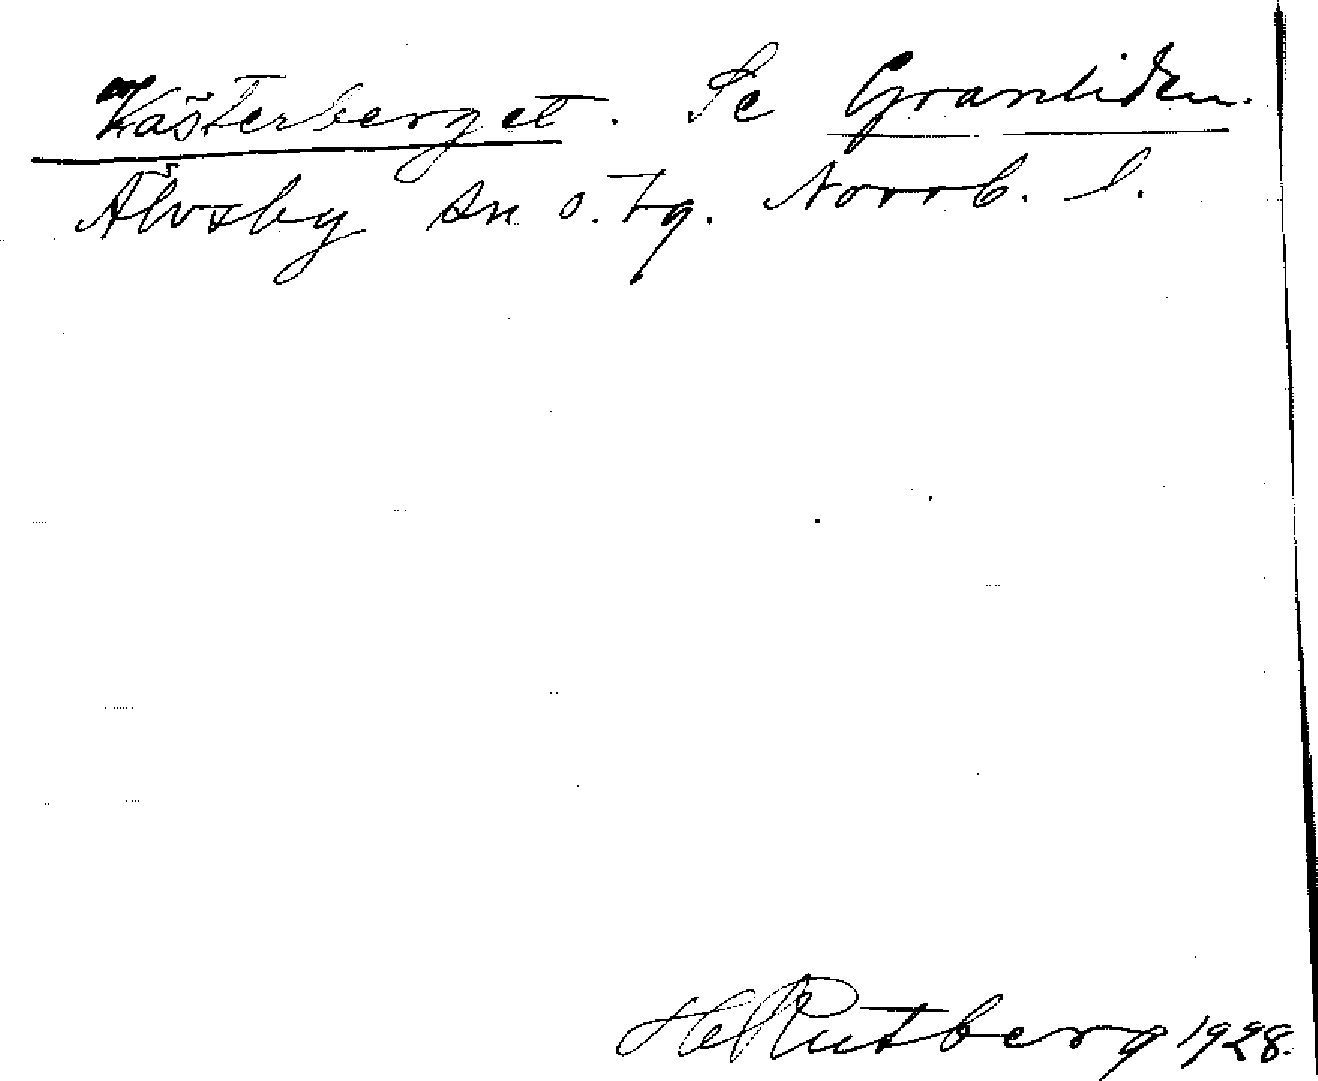 Kåsterberget. Se Granliden.
Älvsby sn o. tg. Norrb. l.
Hel Rutberg 1928.